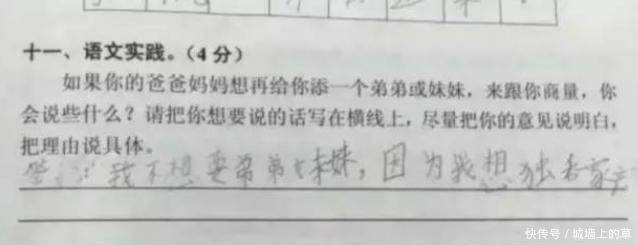 十一、语文实践。(4分)
如果你的爸爸妈妈想再给你添一个弟弟或妹妹，来跟你商量，你
会说些什么？请把你想要说的话写在横线上，尽量把你的意见说明白，
把理由说具体。
答：我不想要弟弟或妹妹，因为我想独吞家产
快传号/城墙上的草